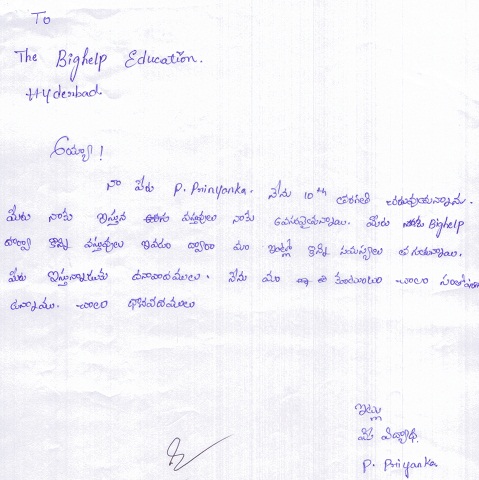 To
The Bighelp Education.
Hyderabad.
అయ్యా!
నా పేరు P. Prinyanka. నేను 10th తరగతి చదువుతున్నాను.
మీరు నాకు ఇస్తున వస్తువులు నాకు ఉపయోగపడుతున్నాయి. మీరు Bighelp
ద్వారా కొన్ని వస్తువులు ఇవడం ద్వారా మా ఇంట్లో కొన్ని సమస్యలు
మీరు ఇస్తున్నందుకు ధన్యవాదములు. నేను మా చాలా సంతోషంగా
ఉన్నాము. చాలా ధన్యవాదములు
ఇట్లు
మీ విద్యార్థి
P. Priyanka